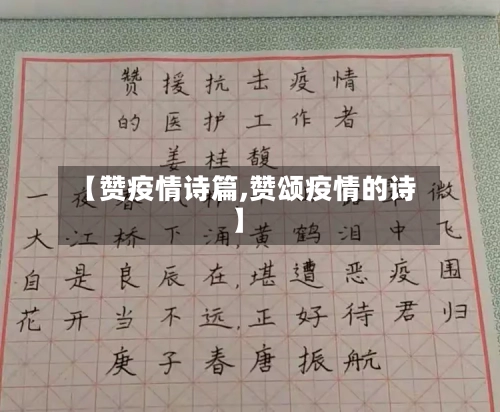 赞援抗击疫情
的医护工作者
姜桂馥
【赞疫情诗篇,赞颂疫情的诗
】
一夜春 微
大江桥下涌,黄鹤泪中飞
自是良辰在,堪遭恶疫围
花开当不远,正好待君归
庚子春唐振航